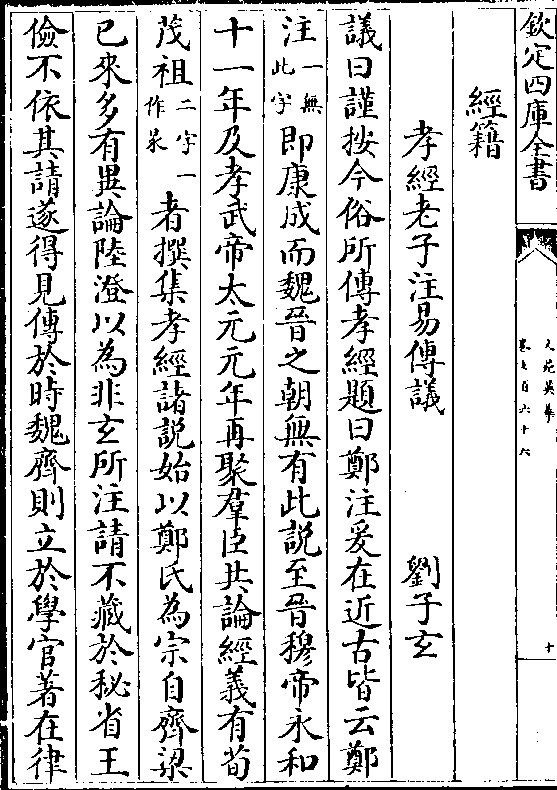 欽定四庫全書
文苑英華
卷七百六十六
十
經籍
孝經老子注易傳議
劉子玄
議曰謹按今俗所傳孝經題曰鄭注爰在近古皆云鄭
注一無此字即康成而魏晉之朝無有此說至晉穆帝永和
十一年及孝武帝太元元年再聚羣臣共論經義有荀
茂祖二字一作㫤者撰集孝經諸說始以鄭氏為宗自齊梁
已來多有異論陸澄以為非玄所注請不藏於秘省王
儉不依其請遂得見傳於時魏齊則立於學官著在律